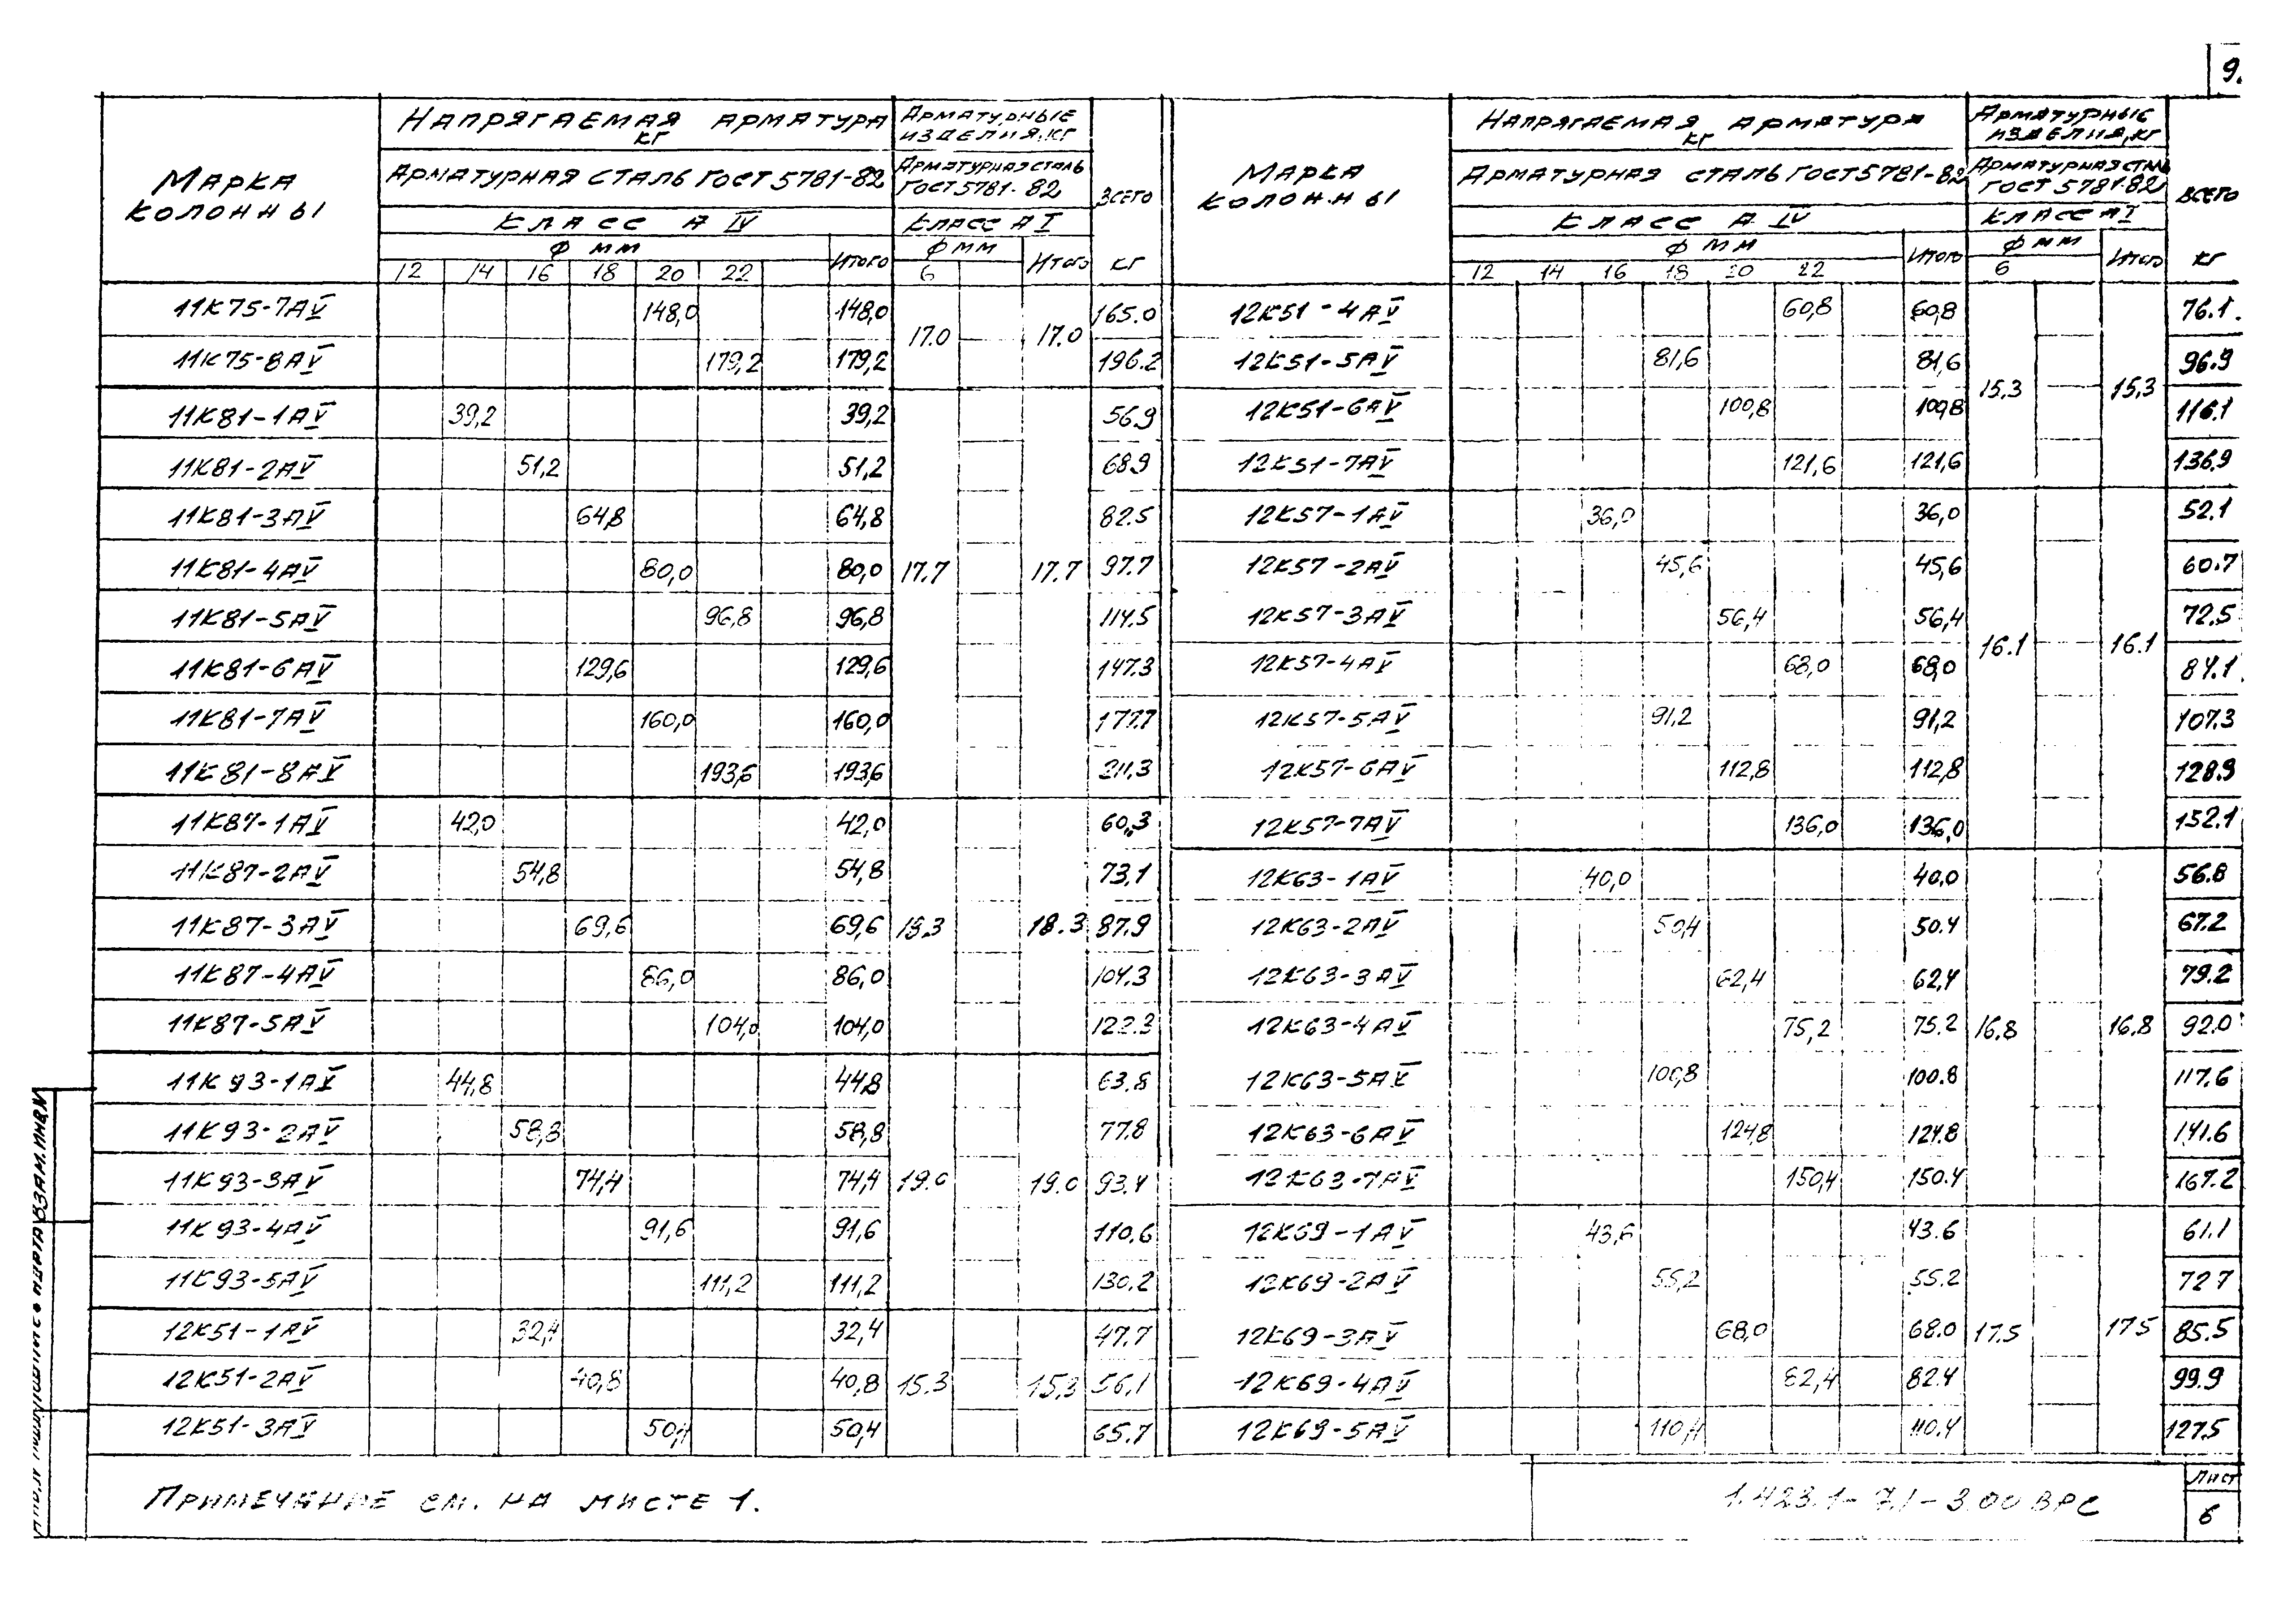 9.
Марка колонны | Напрягаемая арматура кг | Арматурные изделия, кг | Всего кг
Арматурная сталь ГОСТ 5781-82 | Арматурная сталь ГОСТ 5781-82
Класс А IV | Класс А I
Ф мм | Итого | Ф мм | Итого
12 | 14 | 16 | 18 | 20 | 22 | 6
11К75-7АV | 148,0 | 148,0 | 17.0 | 17.0 | 165.0
11К75-8АV | 179,2 | 179,2 | 196.2
11К81-1АV | 39,2 | 39,2 | 56.9
11К81-2АV | 51,2 | 51,2 | 68.9
11К81-3АV | 64,8 | 64,8 | 82.5
11К81-4АV | 80,0 | 80,0 | 17.7 | 17.7 | 97.7
11К81-5АV | 96,8 | 96,8 | 114.5
11К81-6АV | 129,6 | 129,6 | 147.3
11К81-7АV | 160,0 | 160,0 | 177.7
11К81-8АV | 193,6 | 193,6 | 211.3
11К87-1АV | 42,0 | 42,0 | 60,3
11К87-2АV | 54,8 | 54,8 | 73,1
11К87-3АV | 69,6 | 69,6 | 18.3 | 18.3 | 87.9
11К87-4АV | 86,0 | 86,0 | 104.3
11К87-5АV | 104,0 | 104,0 | 122.3
11К93-1АV | 44,8 | 44,8 | 63.8
11К93-2АV | 58,8 | 58,8 | 77.8
11К93-3АV | 74,4 | 74,4 | 19.0 | 19.0 | 93.4
11К93-4АV | 91,6 | 91,6 | 110,6
11К93-5АV | 111,2 | 111,2 | 130.2
12К51-1АV | 32,4 | 32,4 | 47.7
12К51-2АV | 40,8 | 40,8 | 15.3 | 15.3 | 56.1
12К51-3АV | 50,4 | 50,4 | 65.7
Марка колонны | Напрягаемая арматура кг | Арматурные изделия, кг | Всего кг
Арматурная сталь ГОСТ 5781-82 | Арматурная сталь ГОСТ 5781-82
Класс А IV | Класс А I
Ф мм | Итого | Ф мм | Итого
12 | 14 | 16 | 18 | 20 | 22 | 6
12К51-4АV | 60,8 | 60,8 | 76.1
12К51-5АV | 81,6 | 81,6 | 15.3 | 15,3 | 96.9
12К51-6АV | 100,8 | 100,8 | 116.1
12К51-7АV | 121,6 | 121,6 | 136.9
12К57-1АV | 36,0 | 36,0 | 52.1
12К57-2АV | 45,6 | 45,6 | 60.7
12К57-3АV | 56,4 | 56,4 | 72.5
12К57-4АV | 68,0 | 68,0 | 16.1 | 16.1 | 84.1
12К57-5АV | 91,2 | 91,2 | 107.3
12К57-6АV | 112,8 | 112,8 | 128.9
12К57-7АV | 136,0 | 136,0 | 152.1
12К63-1АV | 40,0 | 40,0 | 56.8
12К63-2АV | 50,4 | 50.4 | 67.2
12К63-3АV | 62,4 | 62,4 | 79.2
12К63-4АV | 75,2 | 75.2 | 16.8 | 16.8 | 92.0
12К63-5АV | 100,8 | 100.8 | 117.6
12К63-6АV | 124,8 | 124.8 | 141.6
12К63-7АV | 150,4 | 150.4 | 167.2
12К69-1АV | 43,6 | 43.6 | 61.1
12К69-2АV | 55,2 | 55.2 | 72 7
12К69-3АV | 68,0 | 68.0 | 17.5 | 17 5 | 85.5
12К69-4АV | 82,4 | 82.4 | 99.9
12К69-5АV | 110,4 | 110.4 | 127.5
Примечание см. на листе 1.
1.423.1-7.1-3.00 ВРС
Лист
6
Взам. инв. №